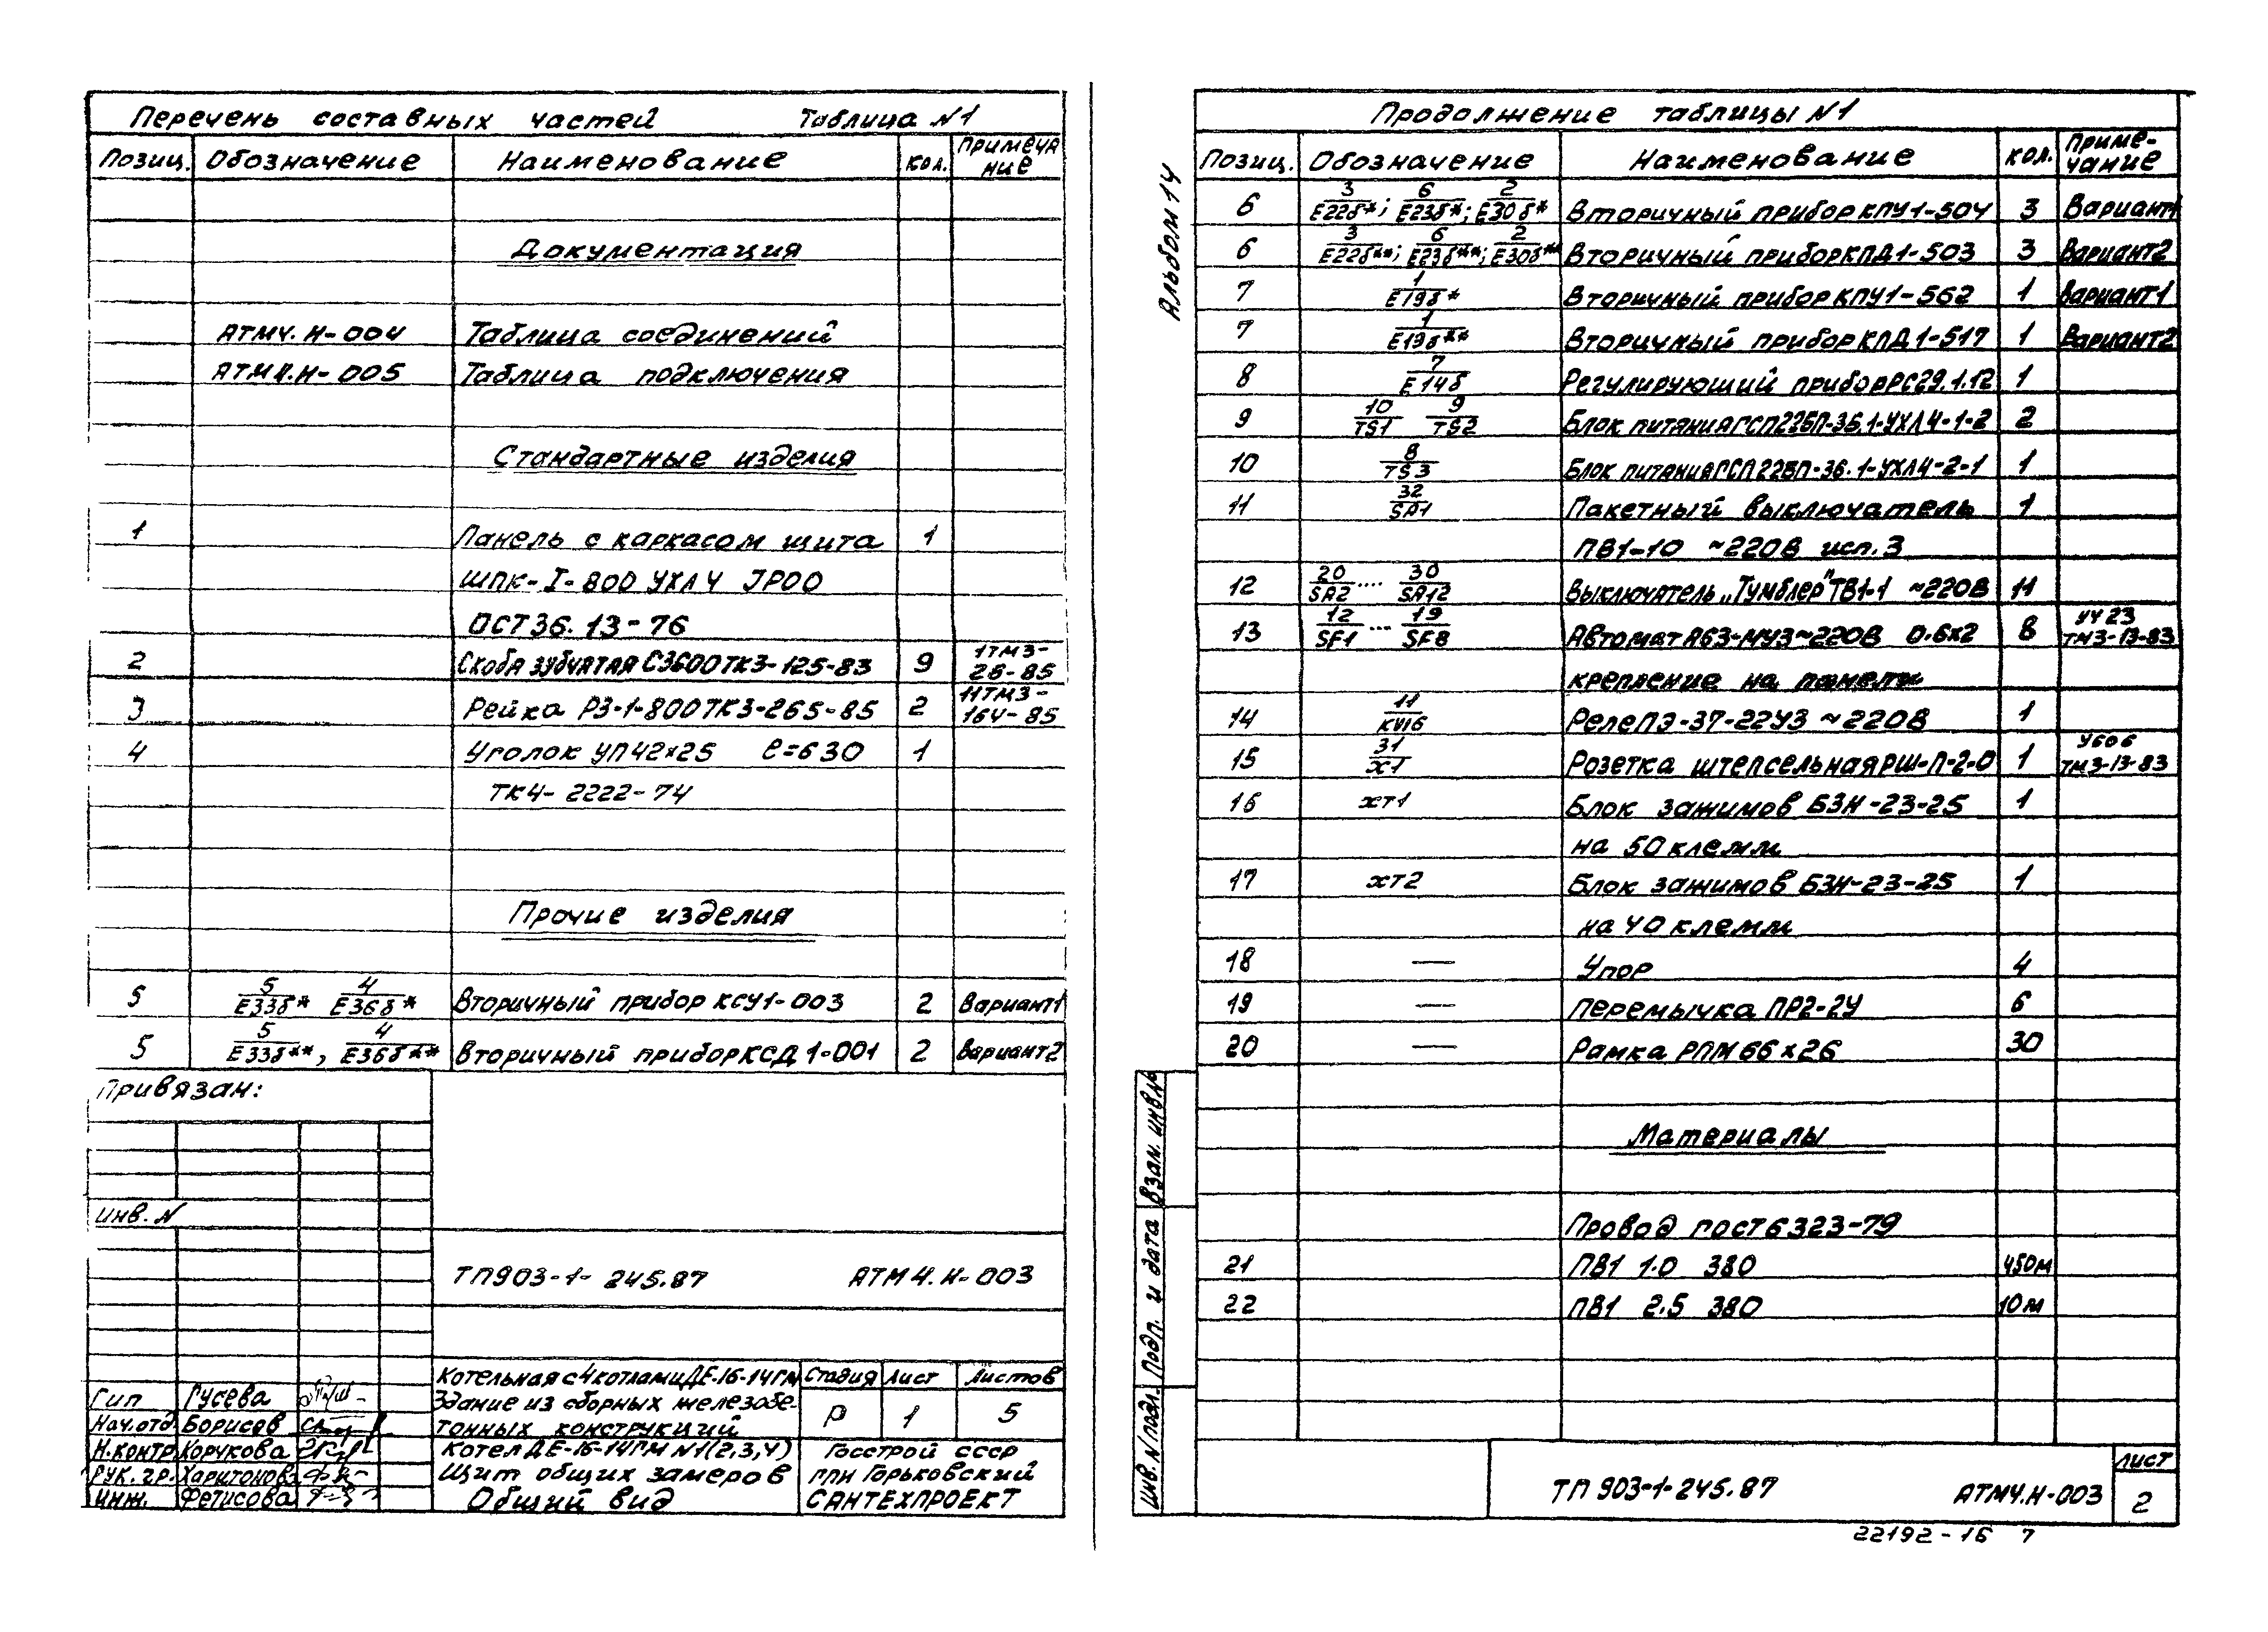 Перечень составных частей Таблица N1
Позиц. Обозначение Наименование кол. Примеча
ние
Документация
АТМ4.Н-004 Таблица соединений
АТМ4.Н-005 Таблица подключения
Стандартные изделия
1 Панель с каркасом щита 1
ШПК-I-800 УХЛ4 JP00
ОСТ36.13-76
2 Скоба зубчатая С3600ТК3-125-83 9 11ТМ3-
26-85
3 Рейка Р3-1-800ТК3-265-85 2 11ТМ3-
164-85
4 Уголок УП42×25 ℓ=630 1
ТК4-2222-74
Прочие изделия
5 5/Е33б* 4/Е36б* Вторичный прибор КСУ1-003 2 Вариант1
5 5/Е33б**, 4/Е36б** Вторичный прибор КСД1-001 2 Вариант2
Привязан:
Инв. N
ТП903-1-245.87 АТМ4.Н-003
Котельная с 4 котлами ДЕ-16-14ГМ Стадия Лист Листов
Здание из сборных железобе-
тонных конструкций Р 1 5
Гип Гусева
Нач.отд. Борисов
Н.контр. Корчкова Котел ДЕ-16-14ГМ N1(2,3,4) Госстрой СССР
Рук.гр. Харитонова Щит общих замеров ГПИ Горьковский
Инж. Фетисова Общий вид САНТЕХПРОЕКТ
Альбом 14
Продолжение таблицы N1
Позиц. Обозначение Наименование кол. Приме-
чание
6 3/Е22б*; 6/Е23б*; 2/Е30б* Вторичный прибор КПУ1-504 3 Вариант1
6 3/Е22б**; 6/Е23б**; 2/Е30б** Вторичный прибор КПД1-503 3 Вариант2
7 1/Е19б* Вторичный прибор КПУ1-562 1 Вариант1
7 1/Е19б** Вторичный прибор КПД1-517 1 Вариант2
8 7/Е14б Регулирующий прибор РС29.1.12 1
9 10/TS1 9/TS2 Блок питания ГСП22БП-36.1-УХЛ4-1-2 2
10 8/TS3 Блок питания ГСП22БП-36.1-УХЛ4-2-1 1
11 32/SA1 Пакетный выключатель 1
ПВ1-10 ~220В исп.3
12 20/SA2 .... 30/SA12 Выключатель „Тумблер" ТВ1-1 ~220В 11
13 12/SF1 ... 19/SF8 Автомат А63-МУ3 ~220В 0.6×2 8 УЧ23
ТМ3-13-83
крепление на панели
14 11/KV16 Реле ПЭ-37-22У3 ~220В 1
15 31/X1 Розетка штепсельная РШ-П-2-0 1 У606
ТМ3-13-83
16 XT1 Блок зажимов БЗН-23-25 1
на 50 клемм
17 XT2 Блок зажимов БЗН-23-25 1
на 40 клемм
18 — Упор 4
19 — Перемычка ПР2-2У 6
20 — Рамка РПМ 66×26 30
Материалы
Провод ГОСТ6323-79
21 ПВ1 1.0 380 450м
22 ПВ1 2.5 380 10м
Инв. N подл. Подп. и дата Взам. инв.№
ТП 903-1-245.87 АТМ4.Н-003 Лист
2
22192-16 7